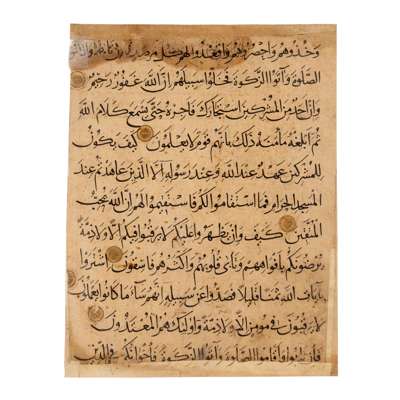 وخذوهم واحصروهم واقعدوا لهم كل مرصد فإن تابوا وأقاموا
الصلوة وآتوا الزكوة فخلوا سبيلهم إن الله غفور رحيم
وإن أحد من المشركين استجارك فأجره حتى يسمع كلام الله
ثم أبلغه مأمنه ذلك بأنهم قوم لا يعلمون كيف يكون
للمشركين عهد عند الله وعند رسوله إلا الذين عاهدتم عند
المسجد الحرام فما استقاموا لكم فاستقيموا لهم إن الله يحب
المتقين كيف وإن يظهروا عليكم لا يرقبوا فيكم إلا ولا ذمة
يرضونكم بأفواههم وتأبى قلوبهم وأكثرهم فاسقون اشتروا
بآيات الله ثمنا قليلا فصدوا عن سبيله إنهم ساء ما كانوا يعملون
لا يرقبون في مؤمن إلا ولا ذمة وأولئك هم المعتدون
فإن تابوا وأقاموا الصلوة وآتوا الزكوة فإخوانكم في الدين